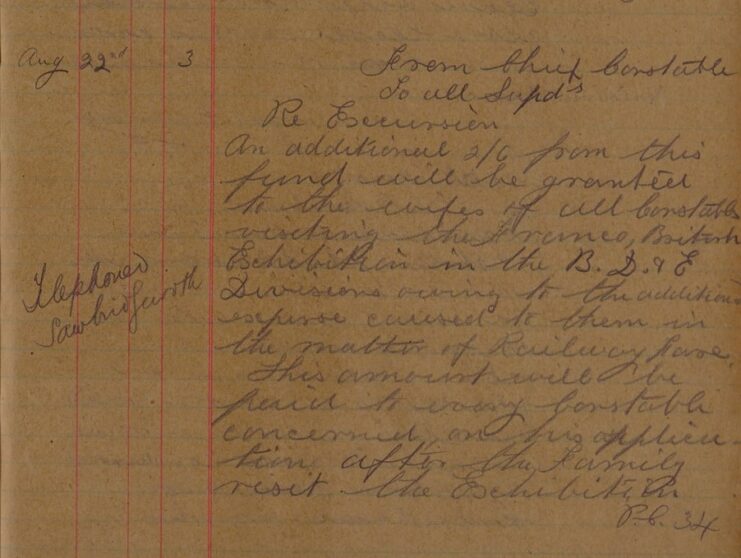 Aug 22nd 3
From Chief Constable
To all Supd's
Re Excursion
An additional 2/6 from this
fund will be granted
to the wifes of all Constables
visiting the Franco, British
Exhibition in the B. D. & E
Divisions owing to the additional
expense caused to them in
the matter of Railway Fare.
This amount will be
paid to every Constable
concerned, on his applica-
tion after the Family
visit the Exhibition
P.C. 34
Telephoned
Sawbridgeworth